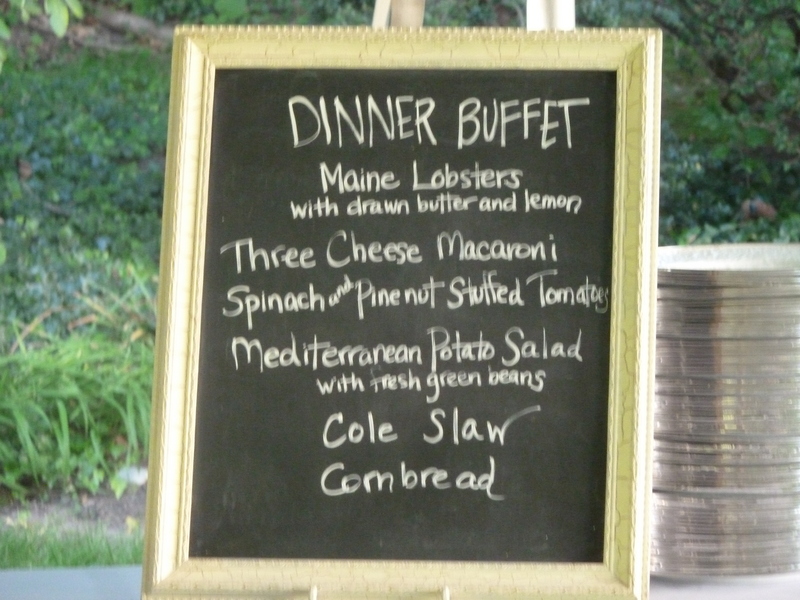 DINNER BUFFET
Maine Lobsters
with drawn butter and lemon
Three Cheese Macaroni
Spinach and Pinenut Stuffed Tomatoes
Mediterranean Potato Salad
with fresh green beans
Cole Slaw
Cornbread